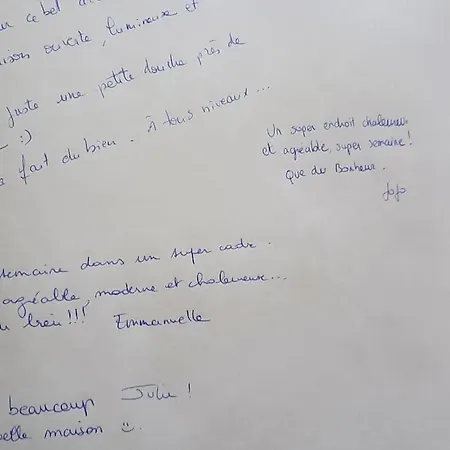 cebel
ouverte, lumineuse et
juste une petite douche près de
:)
fait du bien. À tous niveaux...
Un super endroit chaleureux
et agréable, super semaine!
Que du Bonheur.
JoJo
semaine dans un super cadre.
agréable, moderne et chaleureuse...
bien!!! Emmanuelle
beaucoup Julie!
belle maison ☺.